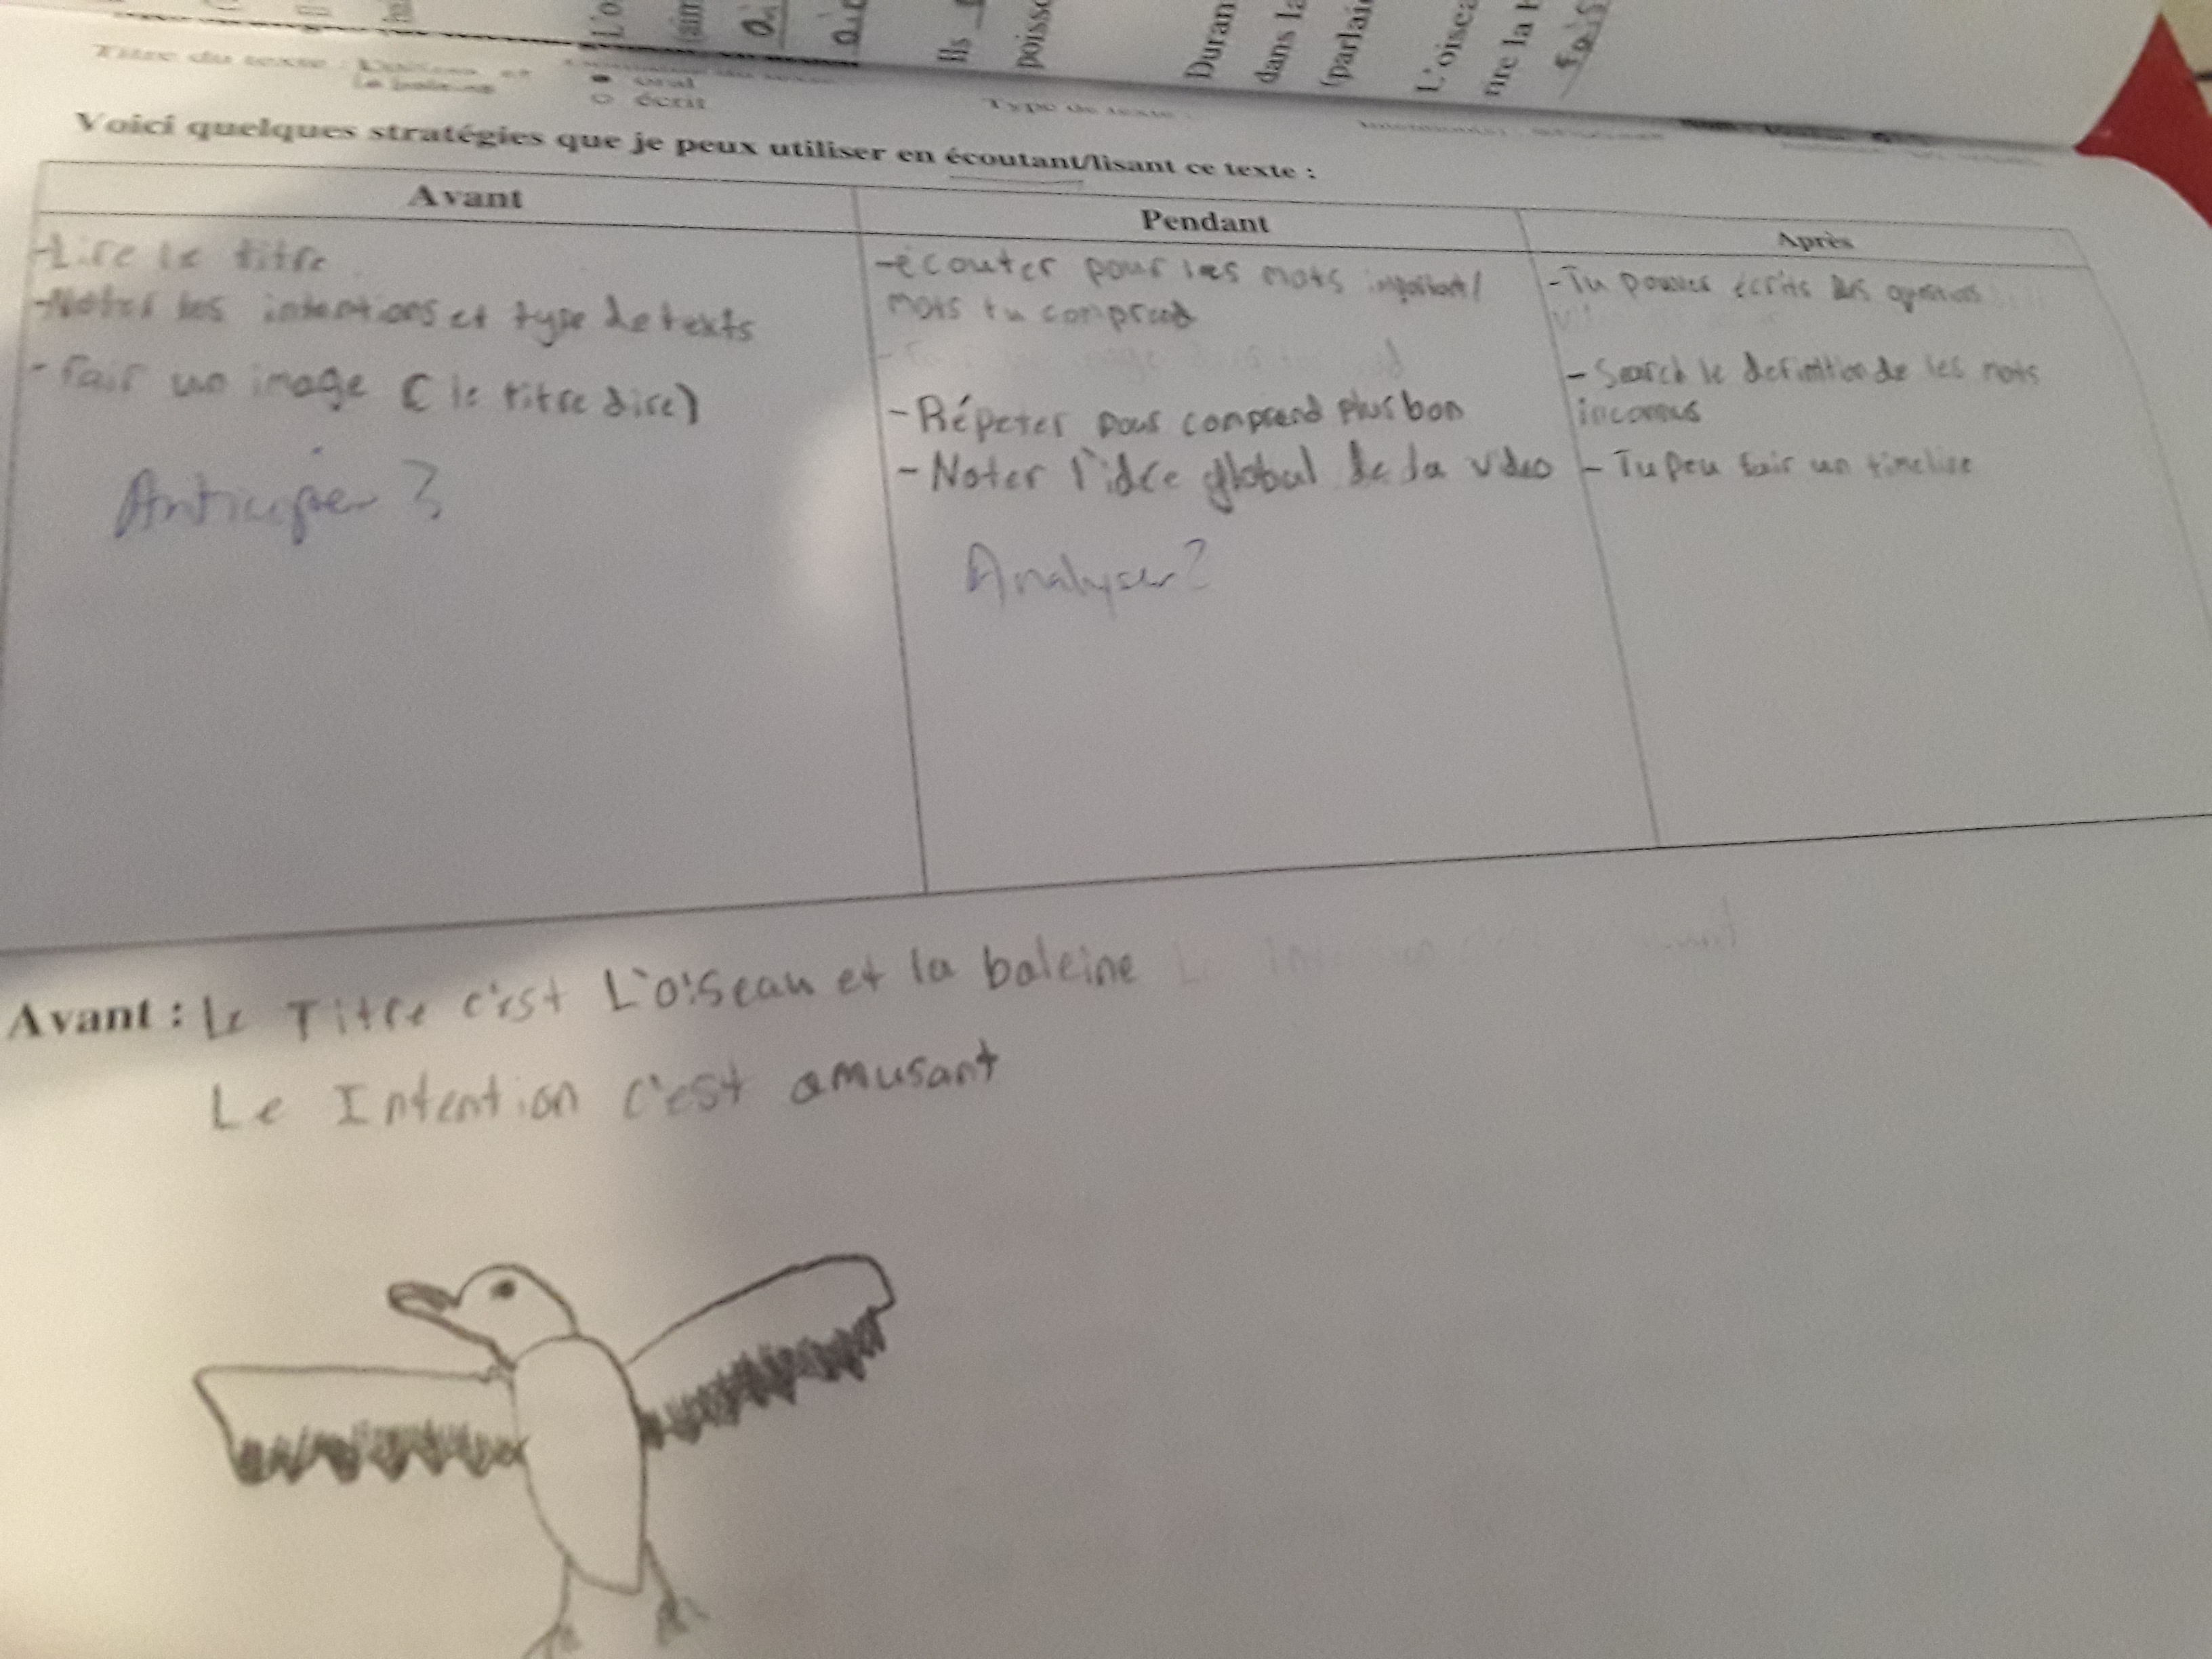 L'o
(aim
Ils
poisso
Duran
dans la
(parlaie
L'oisea
rire la
Titre du texte : L'oiseau et
la baleine
oral
écrit
Type de texte :
Voici quelques stratégies que je peux utiliser en écoutant/lisant ce texte :
Avant
-Lire le titre
-Noter les intentions et type de texts
- Fair un image (le titre dire)
Anticiper?
Pendant
-écouter pour les mots important/
mots tu comprend
- Répéter pour comprend plus bon
- Noter l'idée global de la video
Analyser?
Après
- Tu pouver écrits les
- Search le definition de les mots
inconnus
- Tu peu fair un timeline
Avant : Le Titre c'est L'oiseau et la baleine
Le Intention c'est amusant